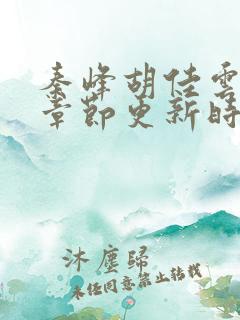 秦峰胡佳雲
章節更新時
沐塵歸
未经同意禁止转载